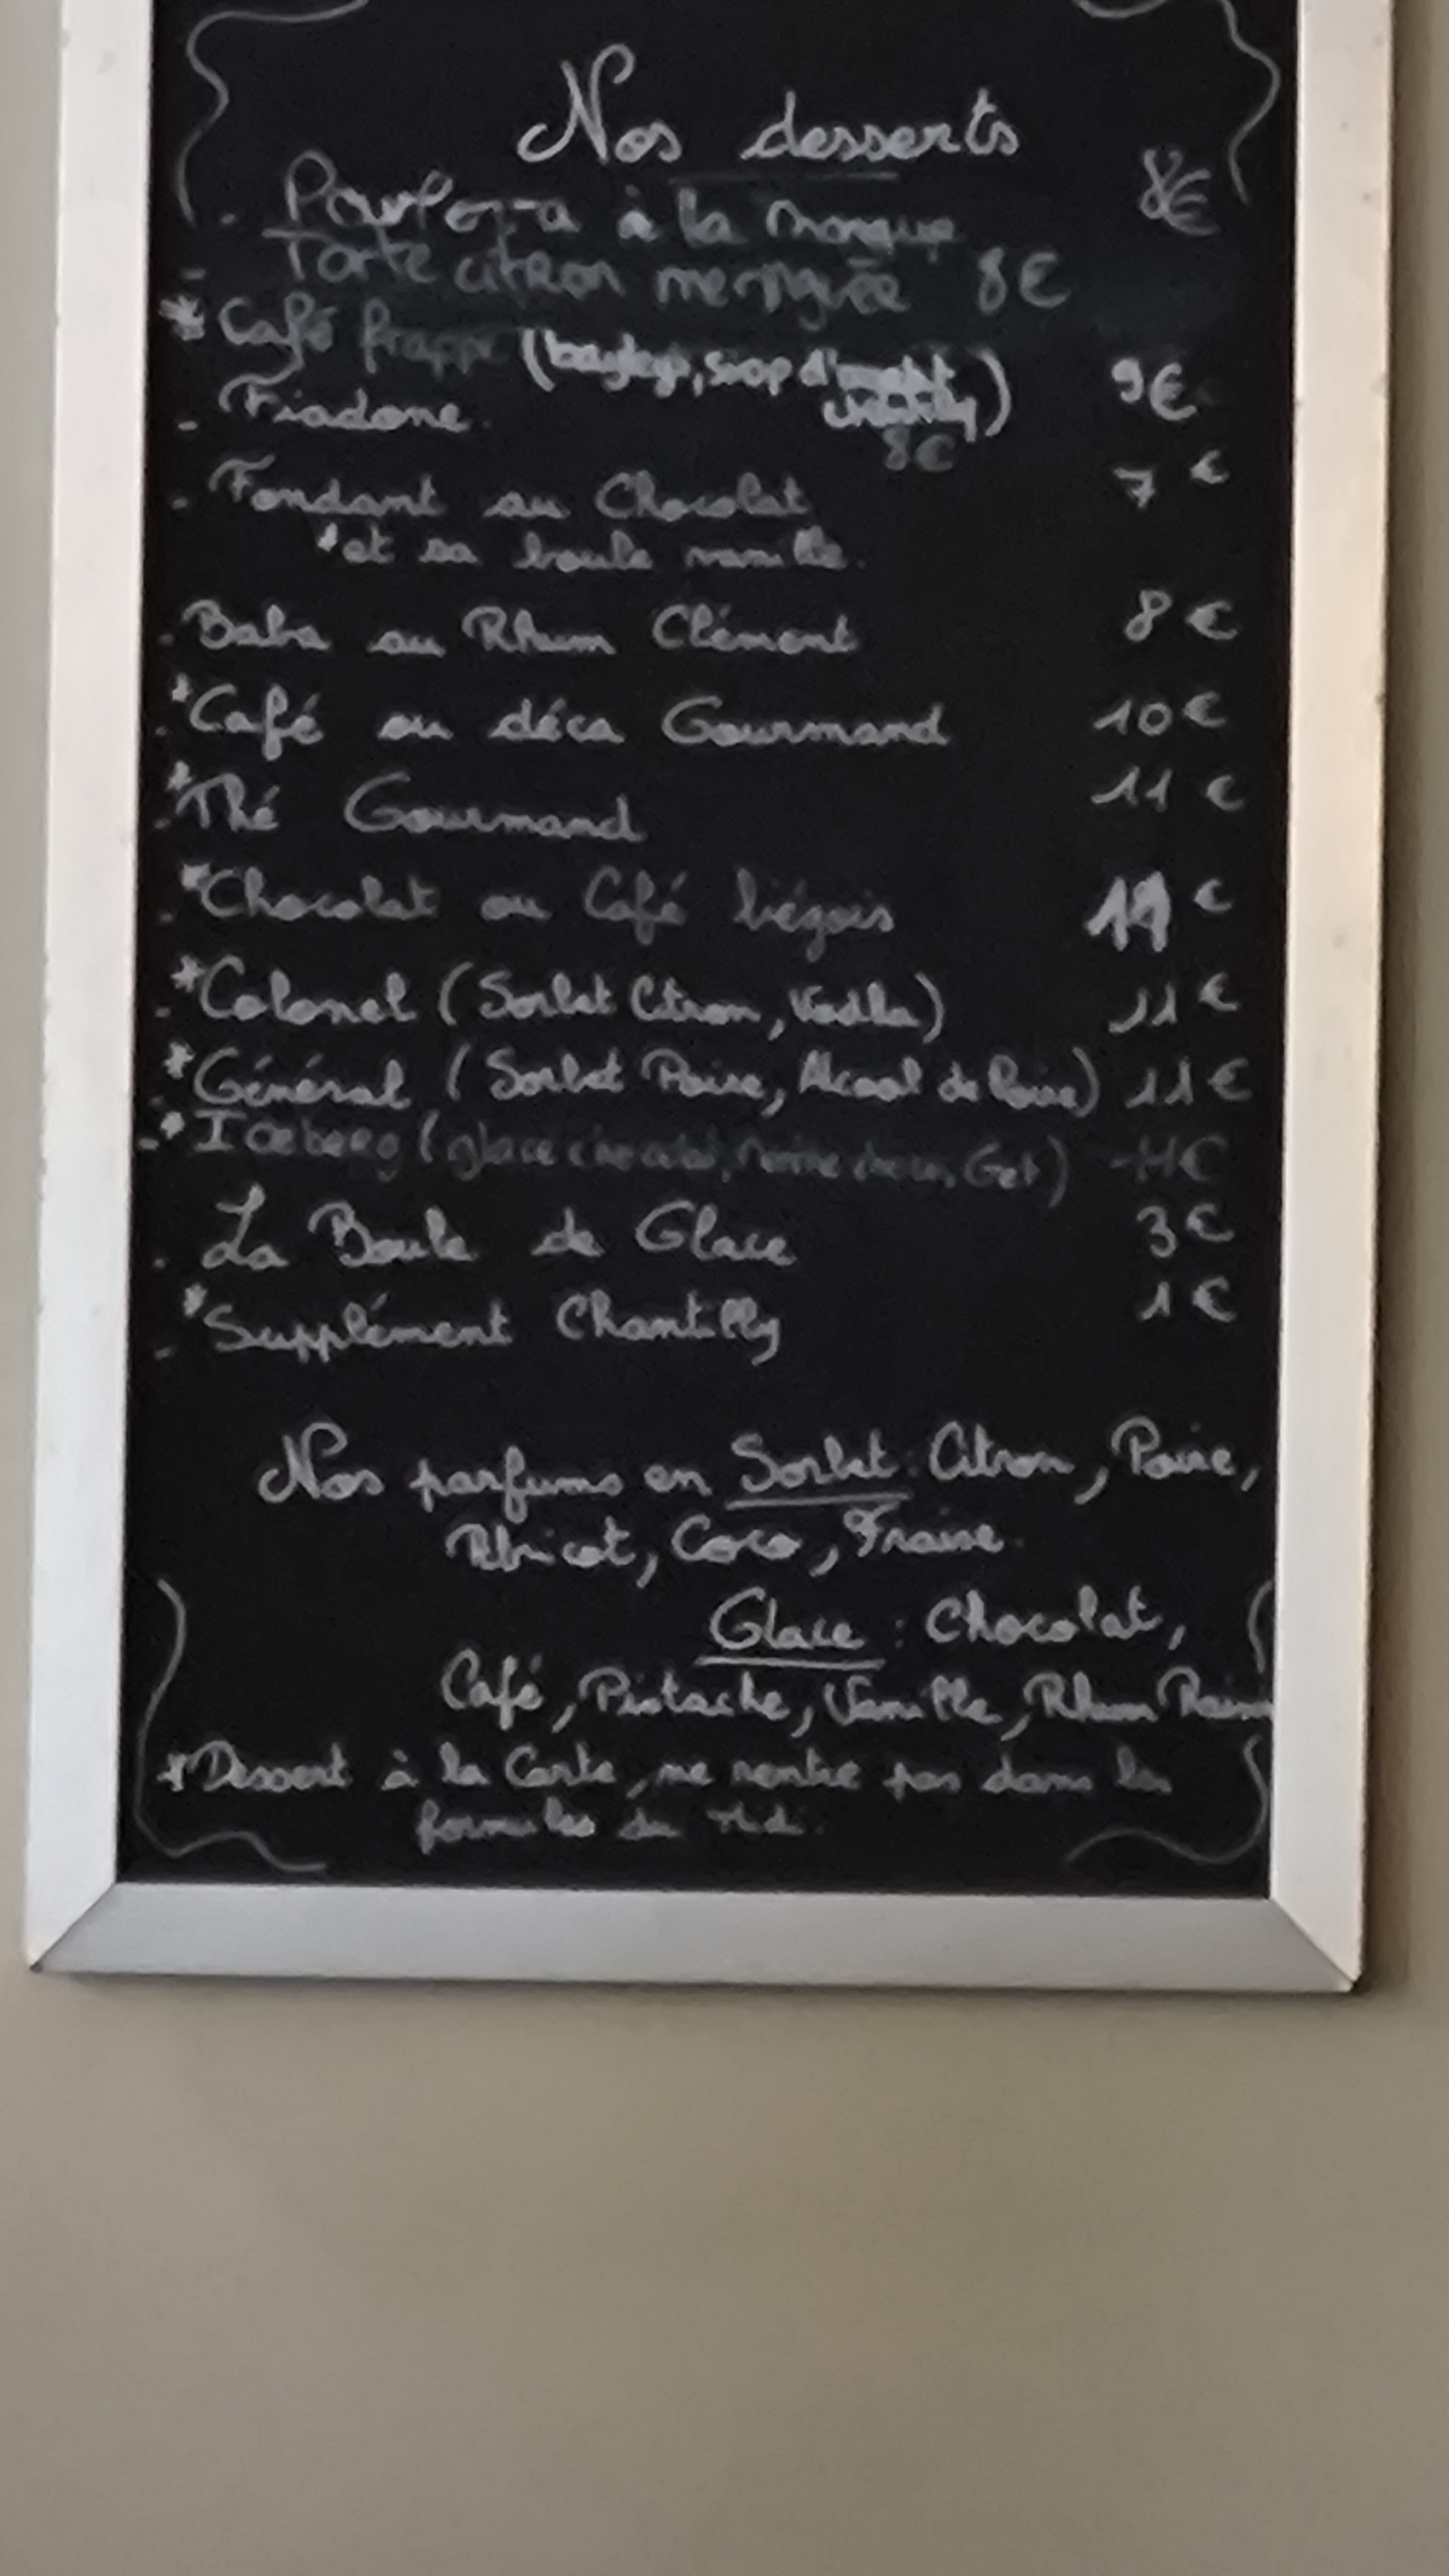 Nos desserts
- à la mangue 8€
- Tarte citron meringuée 8€
* Café frappé (bayleys, sirop d'
chantilly) 9€
- Fiadone 8€
- Fondant au Chocolat 7€
*et sa boule vanille.
- Baba au Rhum Clément 8€
- *Café ou déca Gourmand 10€
- *Thé Gourmand 11€
- *Chocolat ou Café liégois 11€
- *Colonel (Sorbet Citron, Vodka) 11€
- *Général (Sorbet Poire, Alcool de Poire) 11€
- *Iceberg (glace Get) 11€
- La Boule de Glace 3€
- *Supplément Chantilly 1€
Nos parfums en Sorbet : Citron, Poire,
Abricot, Coco, Fraise.
Glace : Chocolat,
Café, Pistache, Vanille, Rhum Raisin
*Dessert à la Carte, ne rentre pas dans la
formules du midi.